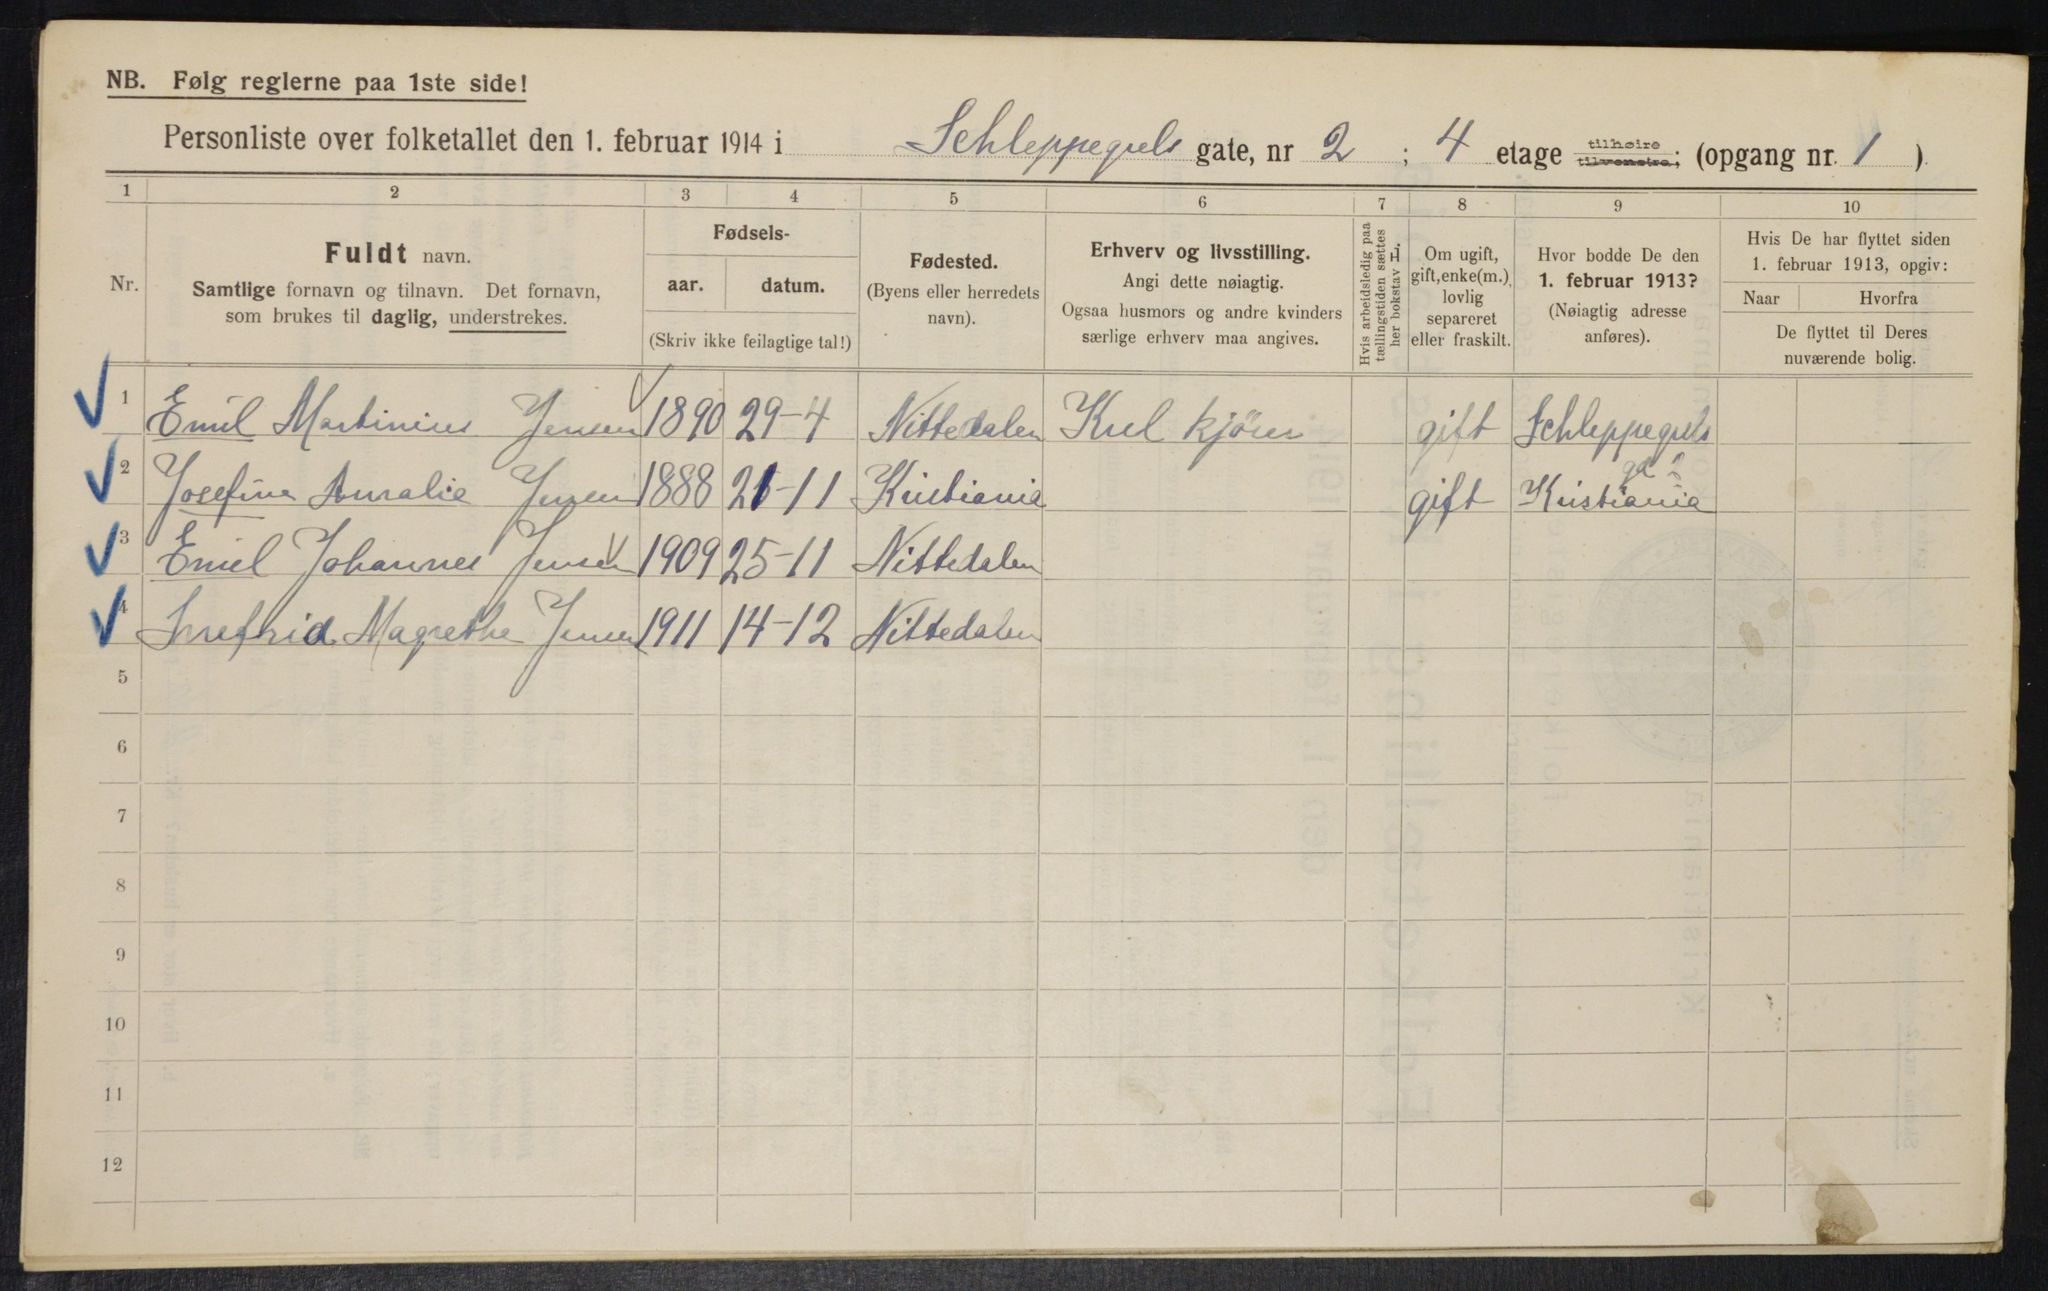 NB. Følg reglerne paa 1ste side!
Personliste over folketallet den 1. februar 1914 i Schleppegrels gate, nr 2 ; 4 etage tilhøire tilvenstre; (opgang nr. 1 )
1 2 3 4 5 6 7 8 9 10
Nr.
Fuldt navn.
Samtlige fornavn og tilnavn. Det fornavn,
som brukes til daglig, understrekes.
Fødsels-
aar. datum.
(Skriv ikke feilagtige tal!)
Fødested.
(Byens eller herredets
navn).
Erhverv og livsstilling.
Angi dette nøiagtig.
Ogsaa husmors og andre kvinders
særlige erhverv maa angives.
Hvis arbeidsledig paa
tællingstiden sættes
her bokstav L.
Om ugift,
gift, enke(m.),
lovlig
separeret
eller fraskilt.
Hvor bodde De den
1. februar 1913?
(Nøiagtig adresse
anføres).
Hvis De har flyttet siden
1. februar 1913, opgiv:
Naar Hvorfra
De flyttet til Deres
nuværende bolig.
1 Emil Martinius Jensen 1890 29-4 Nittedalen Kul kjører gift Schleppegrels
2 Josefine Amalie Jensen 1888 21-11 Kristiania gift ga 2 Kristiania
3 Emil Johannes Jensen 1909 25-11 Nittedalen
4 Magrethe Jensen 1911 14-12 Nittedalen
5
6
7
8
9
10
11
12